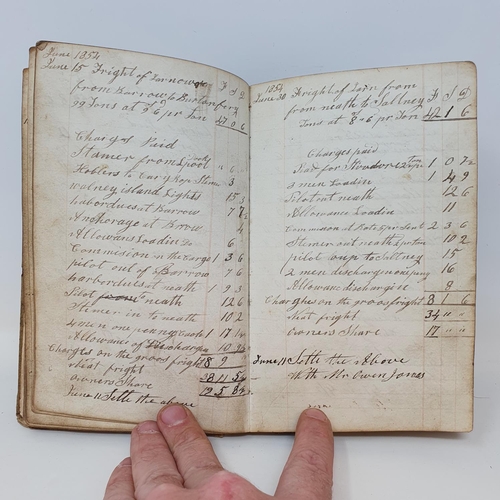 June 1854
June 15 Fright of Iarnowar
from Barrow to
99 Tons at 9/6 pr Ton 47 0 6
Charges Paid
Stemer from Lpool 6
Hoblers to Cary Rope Stemer 3
walney island Lights 15 3
habordues at Barrow 7
Anchorage at Brrow 4
Allowans Loadin Do 6
Commision on the Cargo 1 3 6
pilot out of Barrow 7 6
harbordues at neath 1 9 3
Pilot neath 12 6
Stemer in to neath 10 2
4 men one penny 1 17
Allowance of 10
Charges on the gross fright 8 9
neat fright 38 11 5
owners Share 19 5 8
June 11 Settle the above
1854
June 30 Fright of Iarn from
from neath to Saltney
Tons at 8-6 pr Ton 42 1 6
Charges paid
Paid for 1 0 7
3 men Loadin 1 4 9
Pilot out neath 12 6
Allowance Loadin 11
Commison at Rate 5 pr Sent 2 3 6
Stemer out neath 10 2
pilot oup to Saltney 15
2 men dischargin 16
Allowanc discharging 8
Charghes on the gross fright 8 1 6
neat fright 34 " "
owners Share 17 " "
June 11 Settle the Above
With Mr Owen Jones